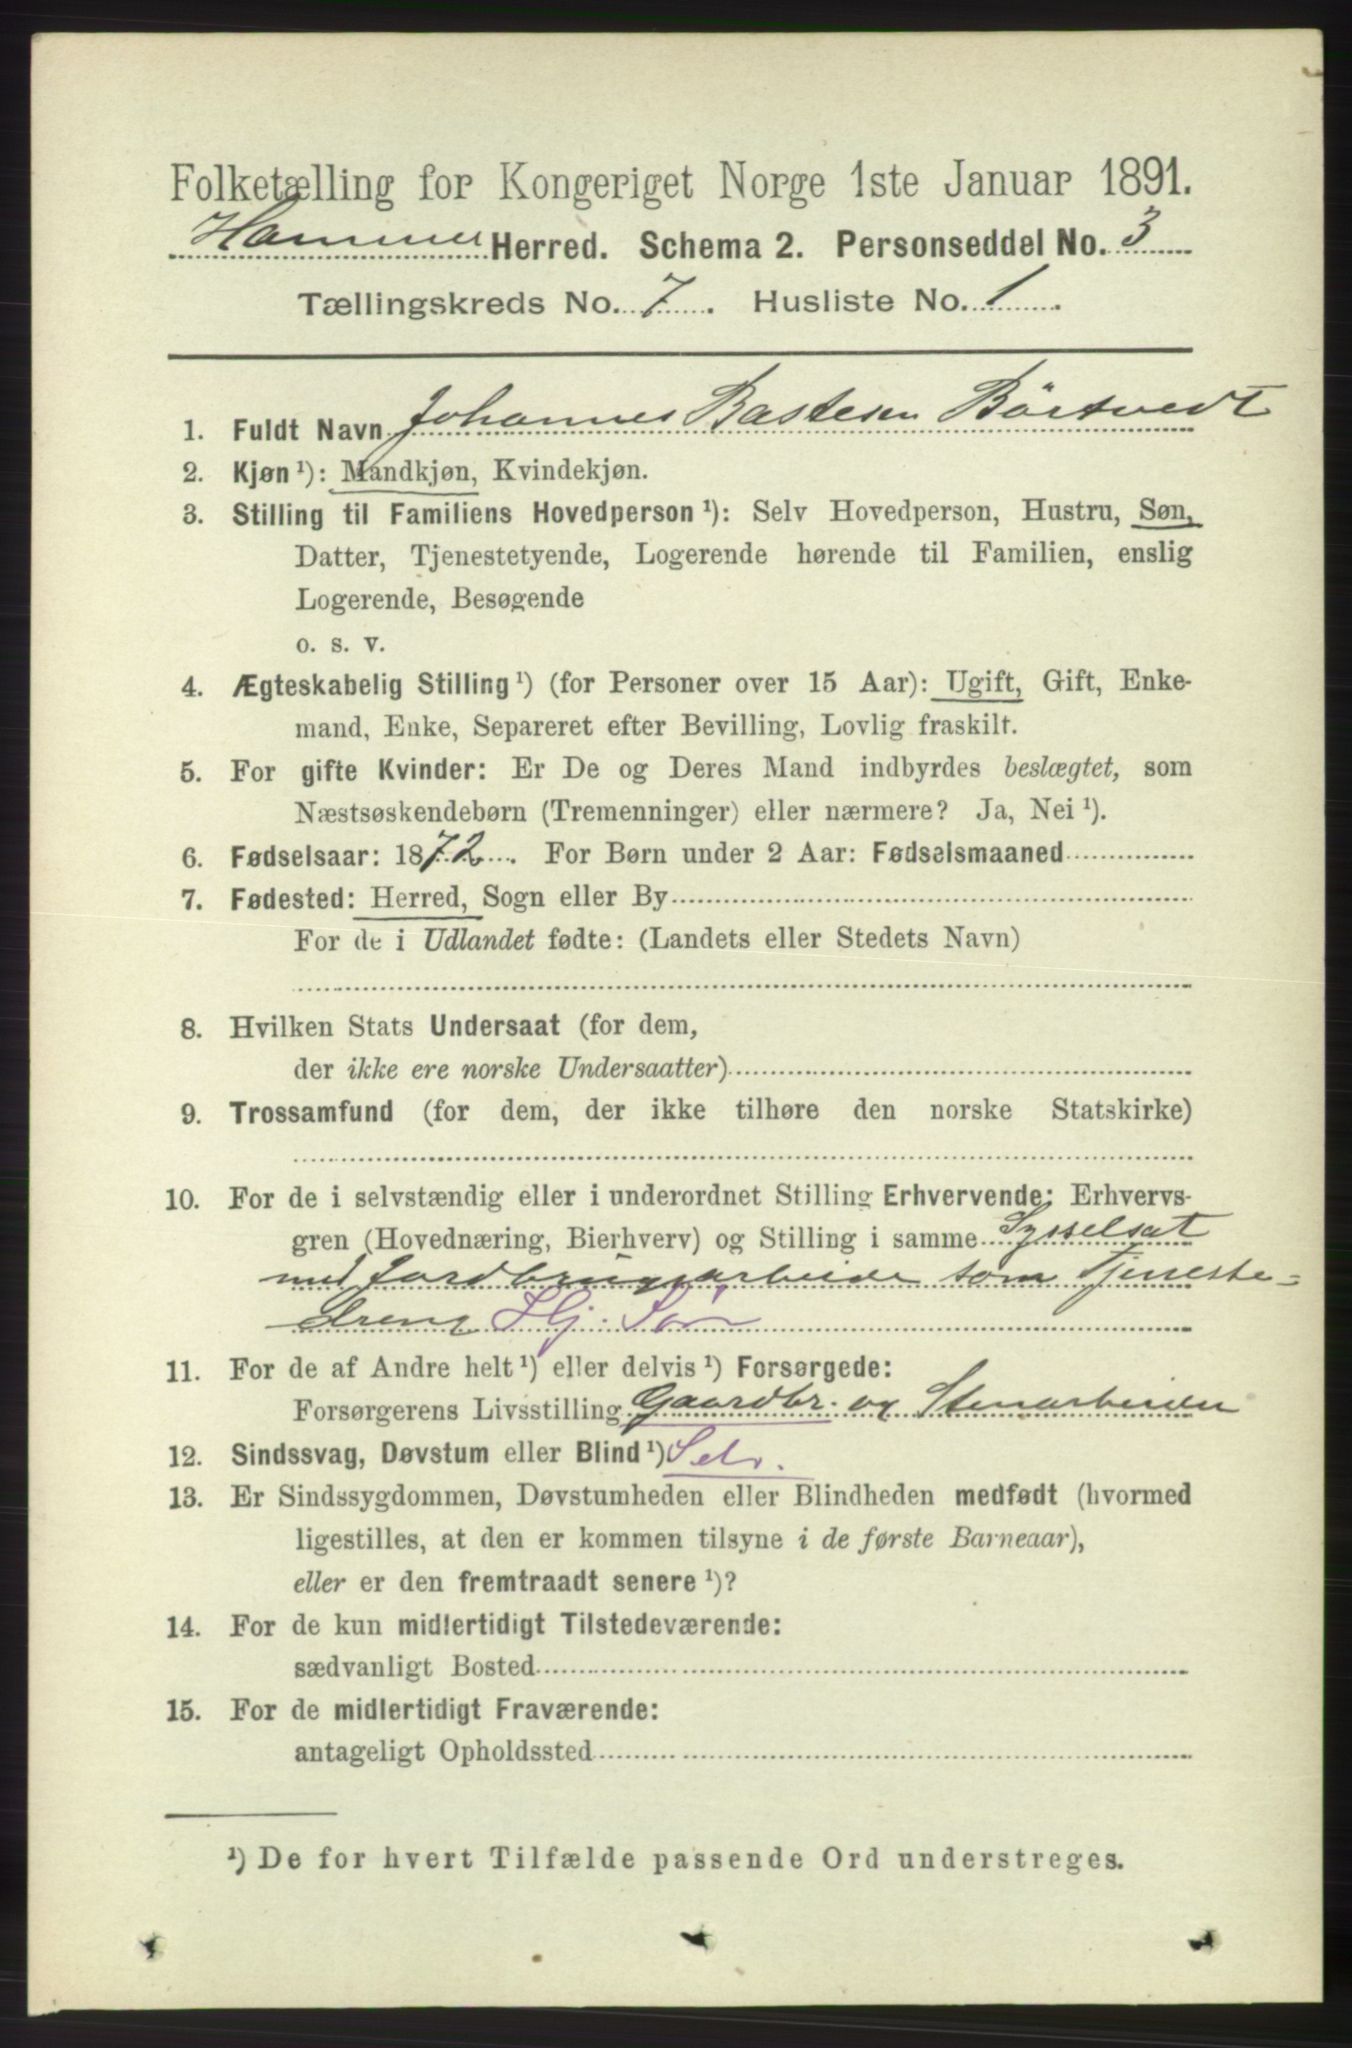 Folketælling for Kongeriget Norge 1ste Januar 1891.
Hammer Herred. Schema 2. Personseddel No. 3
Tællingskreds No. 7. Husliste No. 1
1. Fuldt Navn Johannes Bastesen Börtvedt
2. Kjøn ¹): Mandkjøn, Kvindekjøn.
3. Stilling til Familiens Hovedperson ¹): Selv Hovedperson, Hustru, Søn,
Datter, Tjenestetyende, Logerende hørende til Familien, enslig
Logerende, Besøgende
o. s. v.
4. Ægteskabelig Stilling ¹) (for Personer over 15 Aar): Ugift, Gift, Enke-
mand, Enke, Separeret efter Bevilling, Lovlig fraskilt.
5. For gifte Kvinder: Er De og Deres Mand indbyrdes beslægtet, som
Næstsøskendebørn (Tremenninger) eller nærmere? Ja, Nei ¹).
6. Fødselsaar: 1872. For Børn under 2 Aar: Fødselsmaaned
7. Fødested: Herred, Sogn eller By
For de i Udlandet fødte: (Landets eller Stedets Navn)
8. Hvilken Stats Undersaat (for dem,
der ikke ere norske Undersaatter)
9. Trossamfund (for dem, der ikke tilhøre den norske Statskirke)
10. For de i selvstændig eller i underordnet Stilling Erhvervende: Erhvervs-
gren (Hovednæring, Bierhverv) og Stilling i samme Sysselsat
med Jordbrugsarbeide som Tjeneste-
dreng Hj. Søn
11. For de af Andre helt ¹) eller delvis ¹) Forsørgede:
Forsørgerens Livsstilling Gaardbr. og Stenarbeider
12. Sindssvag, Døvstum eller Blind ¹) Selv.
13. Er Sindssygdommen, Døvstumheden eller Blindheden medfødt (hvormed
ligestilles, at den er kommen tilsyne i de første Barneaar),
eller er den fremtraadt senere ¹)?
14. For de kun midlertidigt Tilstedeværende:
sædvanligt Bosted
15. For de midlertidigt Fraværende:
antageligt Opholdssted
¹) De for hvert Tilfælde passende Ord understreges.